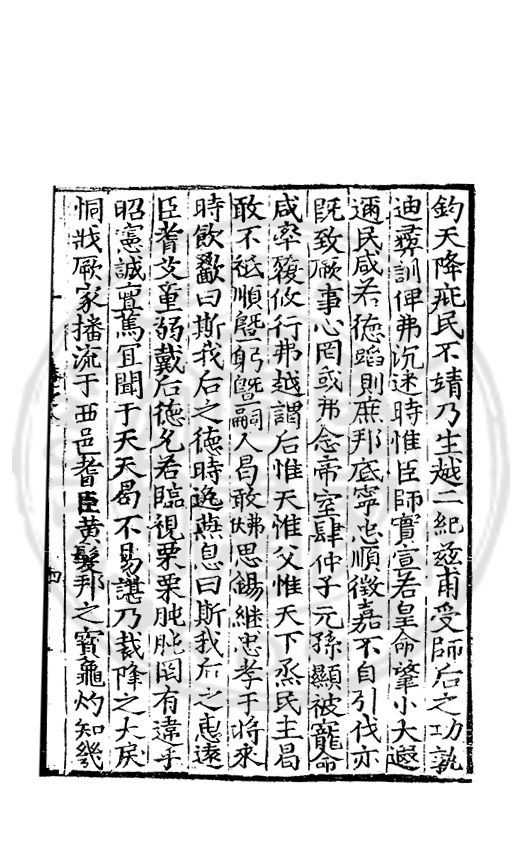 鈞天降疵民不靖乃生越二紀茲甫受師后之功孰
迪彞訓俾弗沉迷時惟臣師寔宣若皇命肇小大遐
邇民咸若德蹈則庶邦底寧忠順徵嘉不自引伐亦
旣致厥事心罔或弗念帝室肆仲子元孫顯被寵命
咸率籲攸行弗越謂后惟天惟父惟天下烝民主曷
敢不祗順曁躬曁嗣人曷敢怫思錫継忠孝于將來
時飲歠曰斯我后之德時逸燕息曰斯我后之惠遠
臣耆艾童弱戴后德允若臨視栗栗肫肫罔有違乎
昭憲誠亶篤宜聞于天天曷不易諶乃裁降之大戾
恫戕厥家播流于西邑耆臣黄髮邦之寶龜灼知幾
四